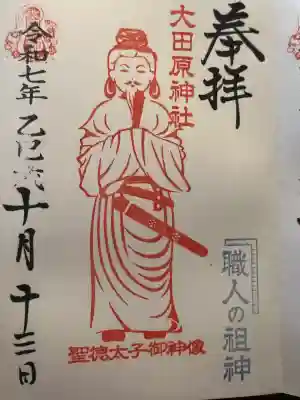 奉拝
大田原神社
職人の祖神
聖徳太子御神像
令和七年乙巳
十月十三日